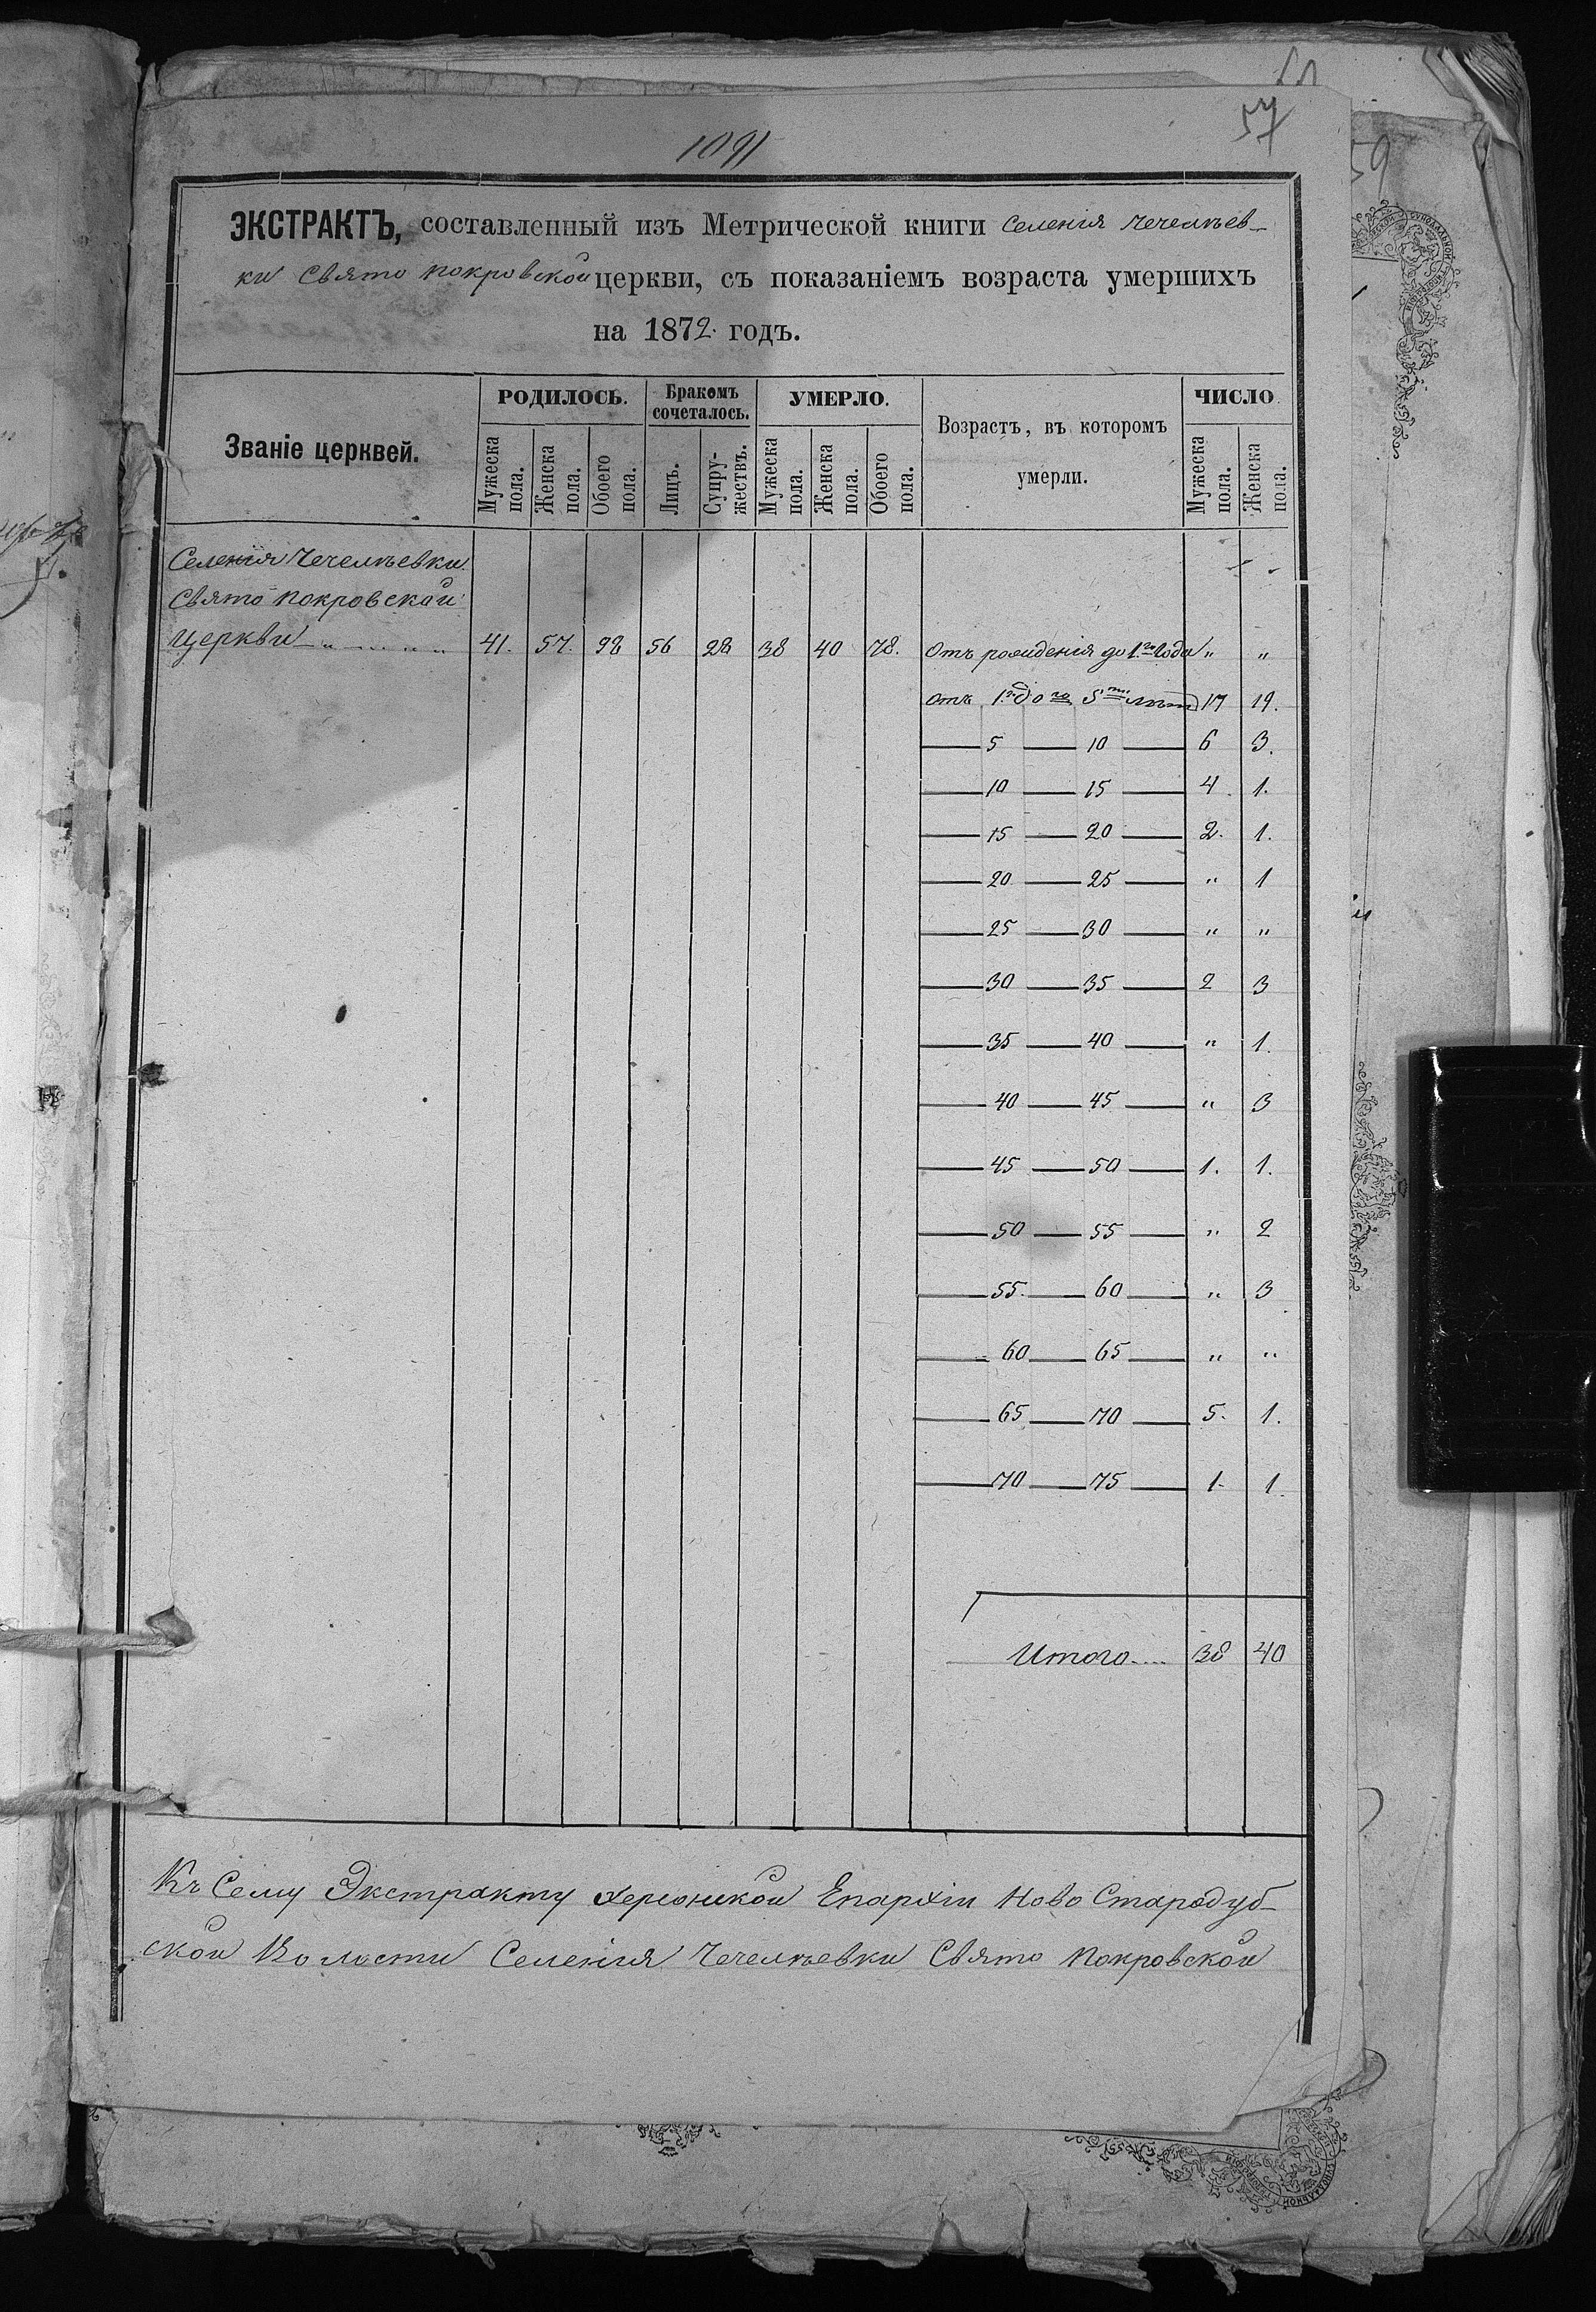 57
1091
ЭКСТРАКТЪ, составленный изъ Метрической книги Селенія Чечелѣев-
ки Свято Покровской церкви, съ показаніемъ возраста умершихъ
на 1872 годъ.
Званіе церквей.
РОДИЛОСЬ.
Мужеска пола.
Женска пола.
Обоего пола.
Бракомъ сочеталось.
Лицъ.
Супружествъ.
УМЕРЛО.
Мужеска пола.
Женска пола.
Обоего пола.
Возрастъ, въ которомъ
умерли.
ЧИСЛО
Мужеска пола.
Женска пола.
Селенія Чечелѣевки
Свято Покровской
Церкви 41. 57. 98 56 28 38 40 78. Отъ рожденія до 1го года " "
Отъ 1го до 5ти лѣтъ 17 19.
5 10 6 3.
10 15 4 1.
15 20 2. 1.
20 25 " 1
25 30 " "
30 35 2 3
35 40 " 1.
40 45 " 3
45 50 1. 1.
50 55 " 2
55. 60 " 3
60 65 " "
65 70 5. 1.
70 75 1. 1.
Итого.... 38 40
Къ Сему Экстракту Херсонской Епархіи Ново Стародуб-
ской Волости Селенія Чечелѣевки Свято Покровской